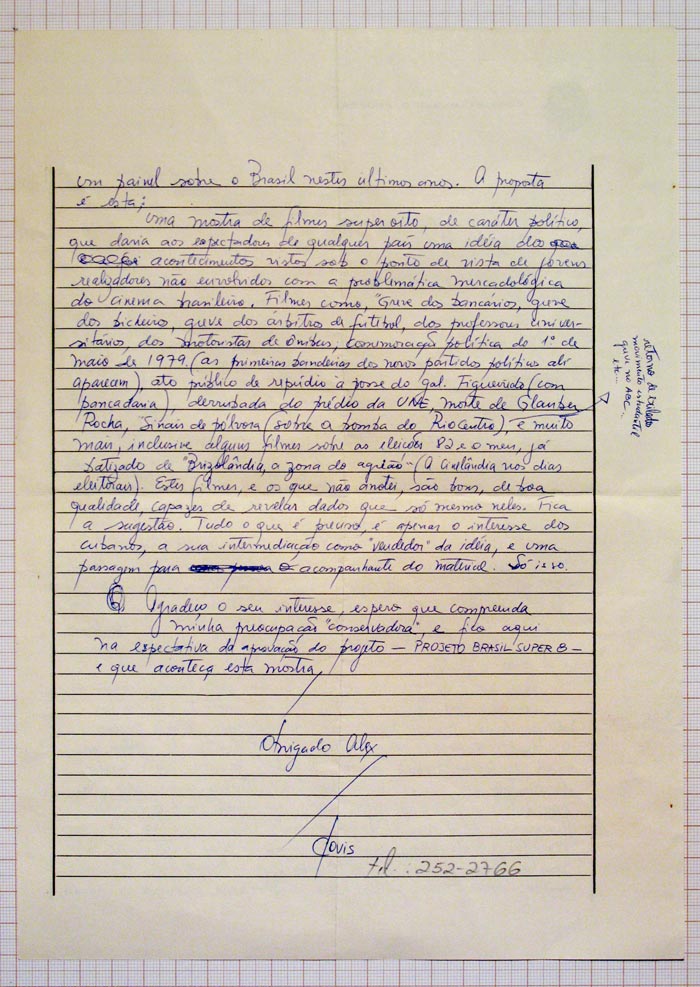 um painel sobre o Brasil nestes últimos anos. A proposta
é esta:
uma mostra de filmes superoito, de caráter político,
que daria aos espectadores de qualquer país uma idéia dos
acontecimentos vistos sob o ponto de vista de jovens
realizadores não envolvidos com a problemática mercadológica
do cinema brasileiro. Filmes como, "Greve dos bancários, greve
dos bicheiro, greve dos árbitros de futibol, dos professores univer-
sitários, dos motoristas de ônibus, comemoração política do 1º de
maio de 1979 (as primeiras bandeiras dos novos partidos politicos ali
aparecem), ato público de repúdio a posse do gal. Figueiredo (com
pancadaria), derrubada do prédio da UNE, morte de Glauber
Rocha, "Sinais de pólvora (sobre a bomba do Riocentro), e muito
mais, inclusive alguns filmes sobre as eleições 82 e o meu, já
batizado de "Brizolândia, a zona do agrião" (A Cinelândia nos dias
eleitorais). Estes filmes, e os que não anotei, são bons, de boa
qualidade, capazes de revelar dados que só mesmo neles. Fica
a sugestão. Tudo o que é preciso, é apenas o interesse dos
cubanos, a sua intermediação como "vendedor" da idéia, e uma
passagem para acompanhante do material. Só isso.
Agradeço o seu interesse, espero que compreenda
minha preocupação "conservadora", e fico aqui
na espectativa da aprovação do projeto — PROJETO BRASIL SUPER 8 —
e que aconteça esta mostra
Obrigado Alex
Clovis
tel.: 252-2766
retorno de exilados
movimento estudantil
greve no ABC
etc